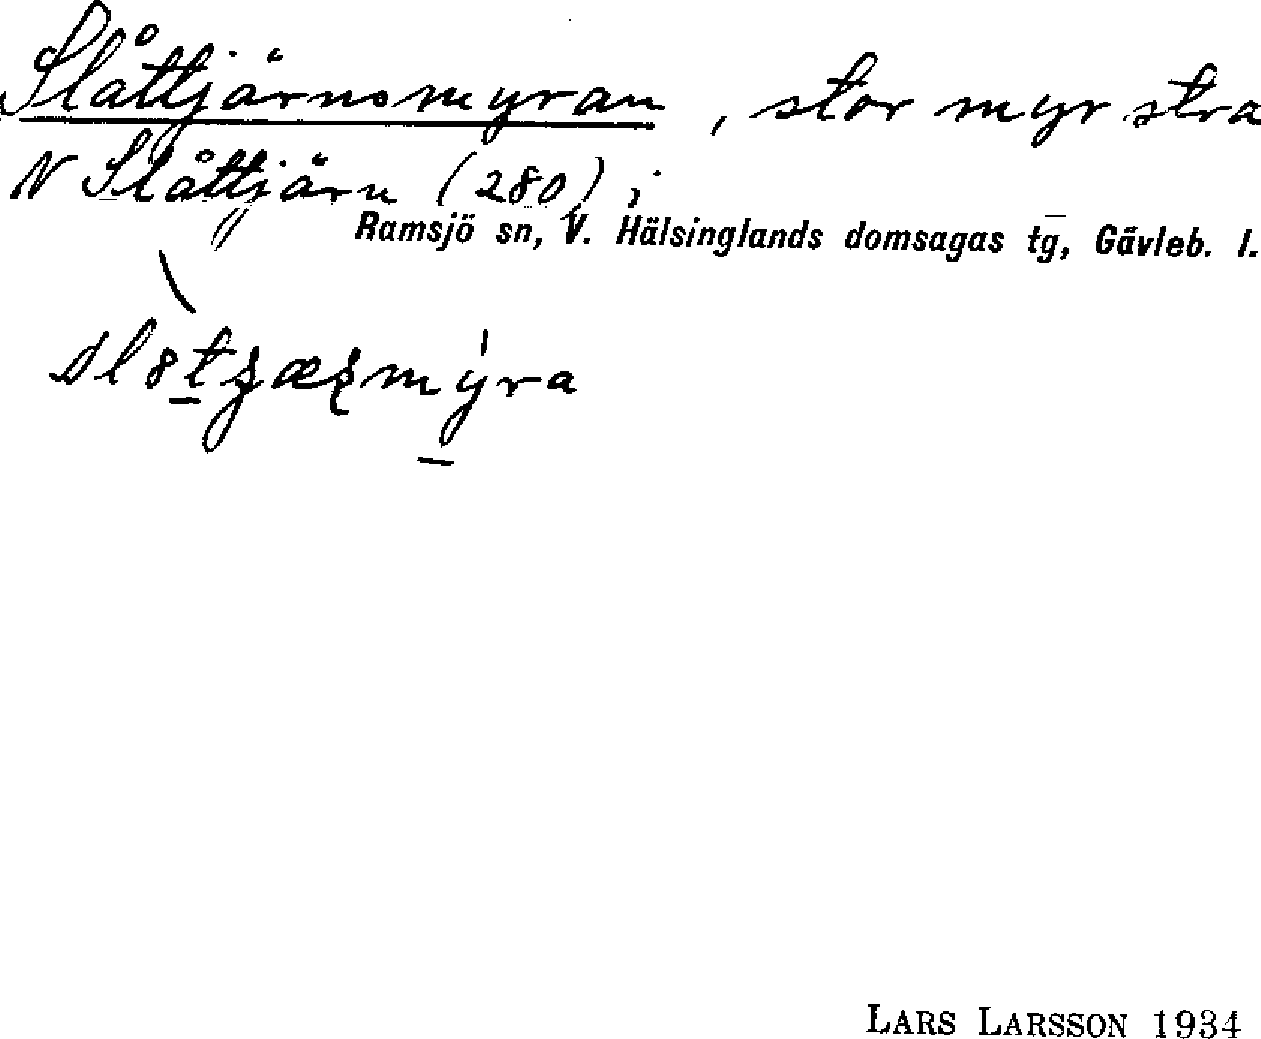 Slåttjärnsmyran, stor myr strax
N Slåttjärn (280) i
Ramsjö sn, V. Hälsinglands domsagas tg, Gävleb. l.
LARS LARSSON 1934